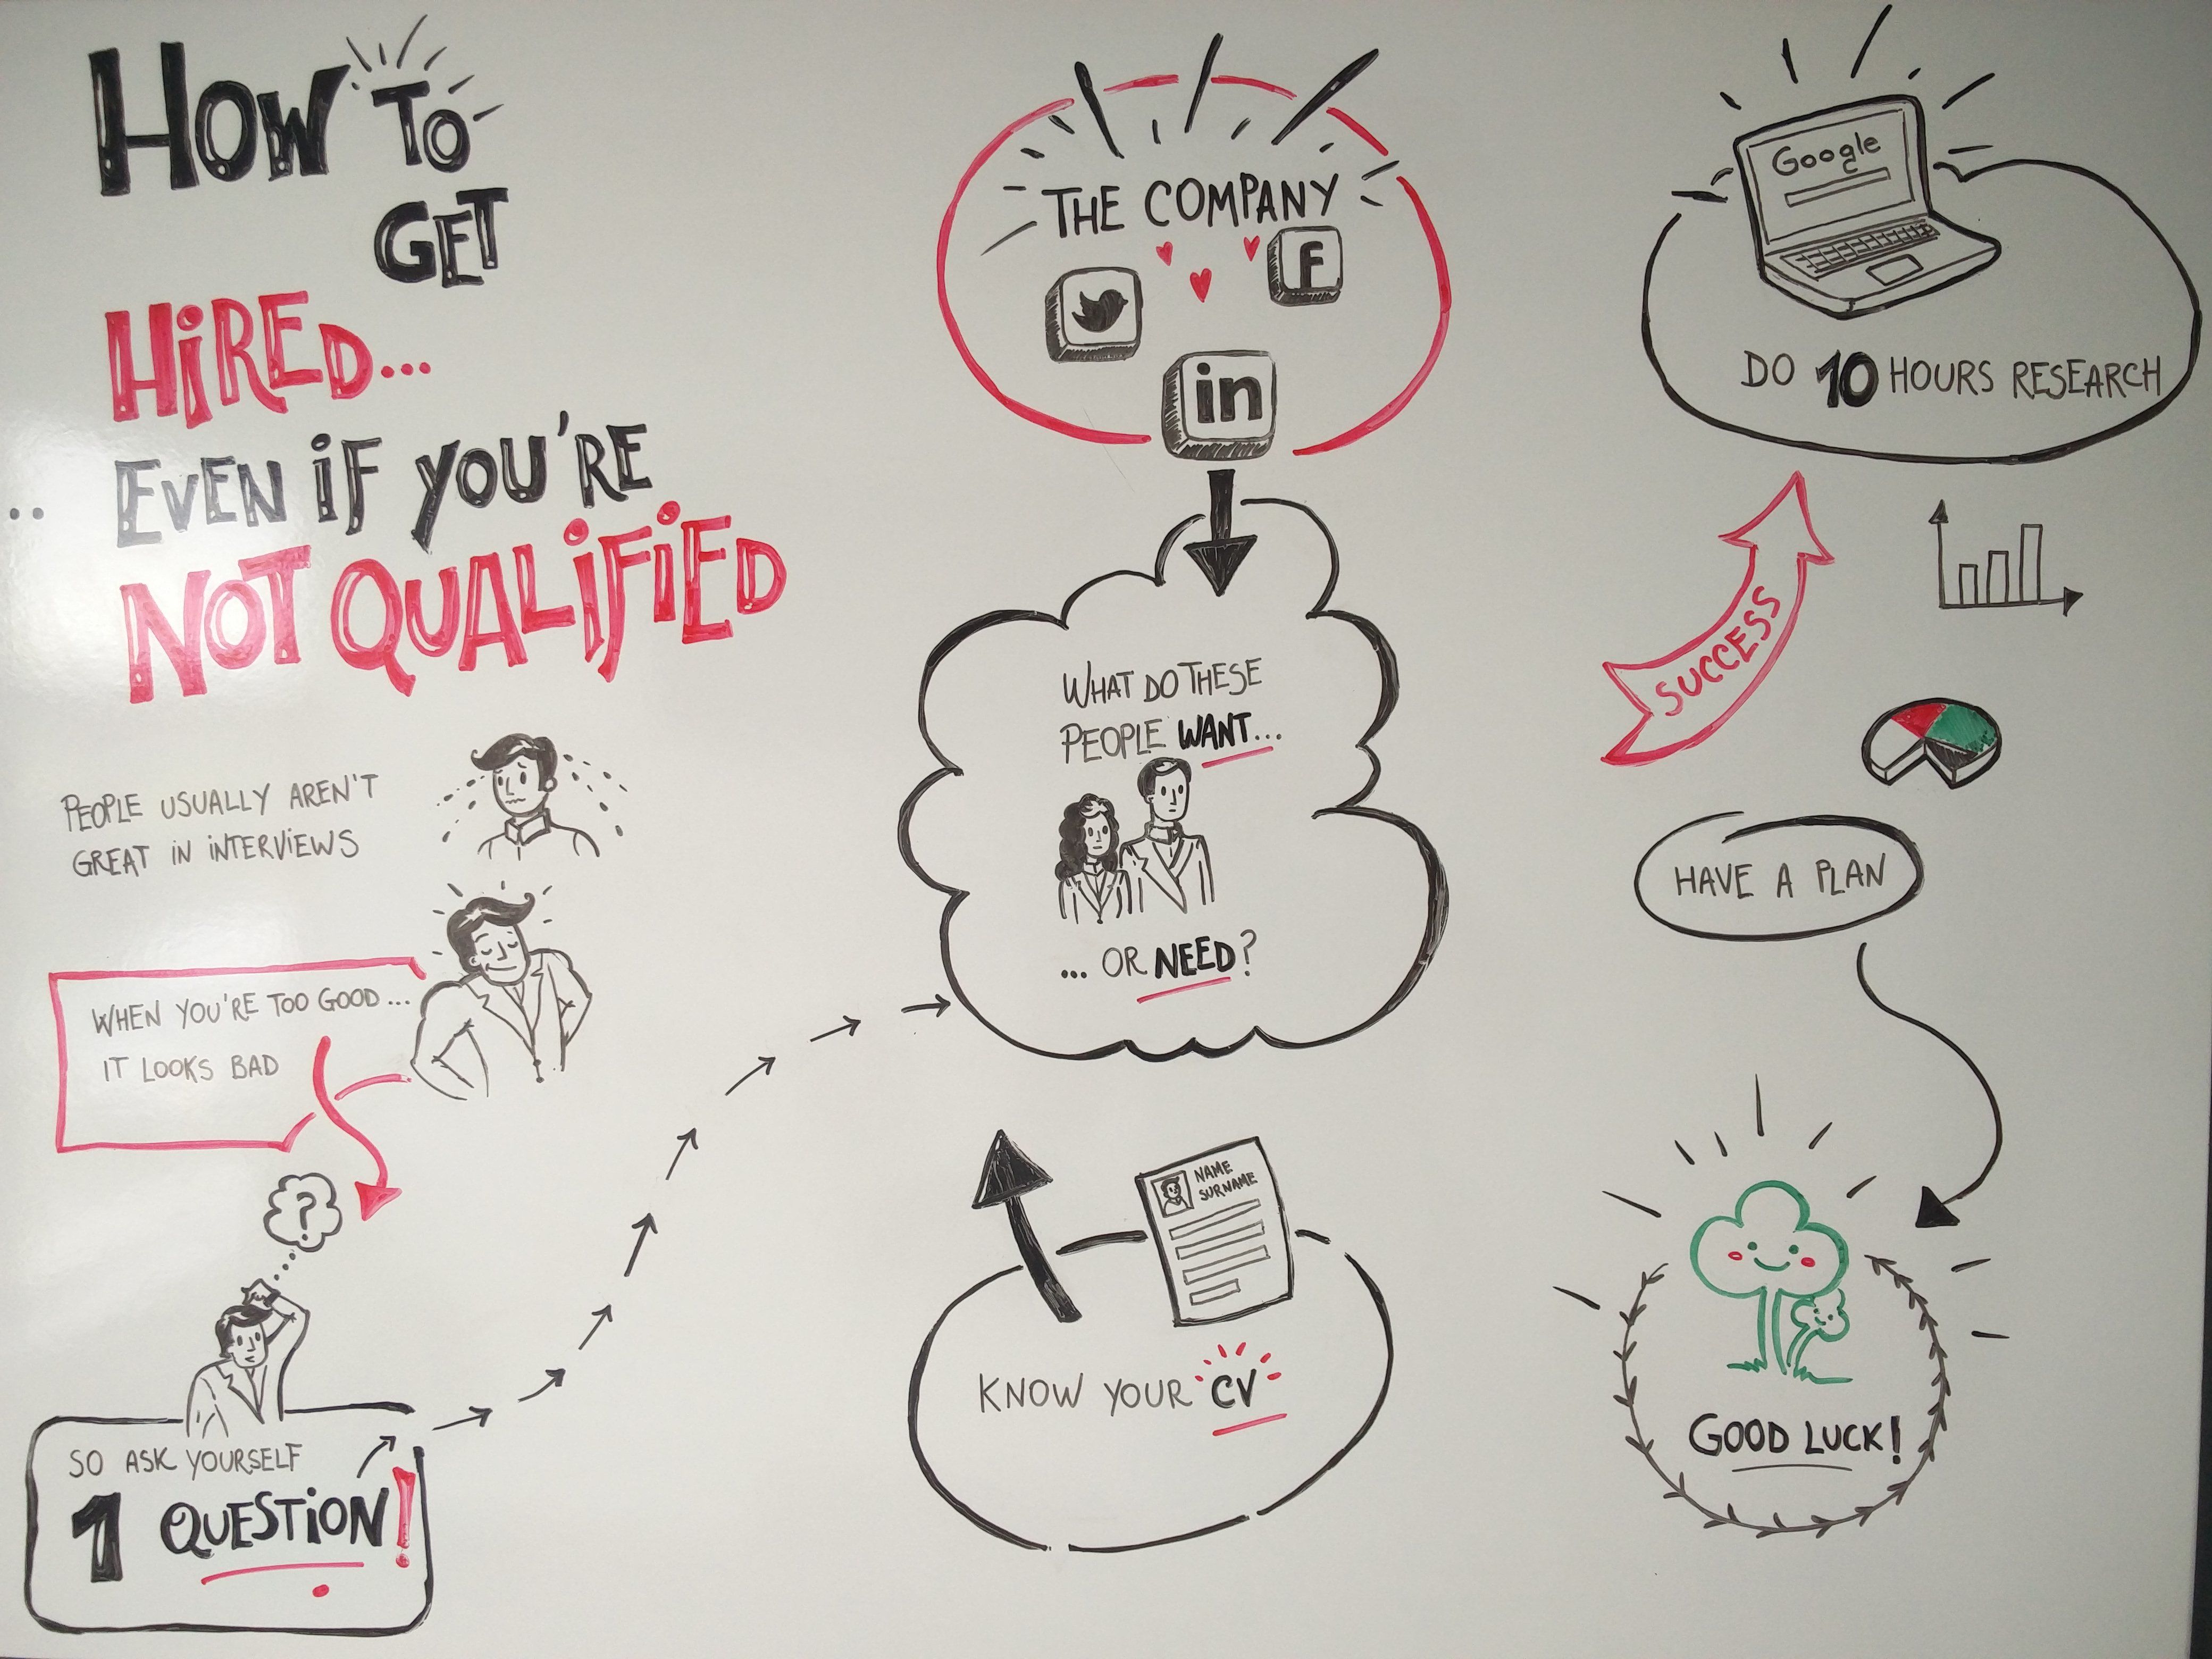 HOW TO
GET
HiRED...
.. EVEN iF YOU'RE
NOT QUALiFiED
PEOPLE USUALLY AREN'T
GREAT iN iNTERViEWS
WHEN YOU'RE TOO GOOD...
IT LOOKS BAD
?
SO ASK YOURSELF
1 QUESTiON!
THE COMPANY
F
in
WHAT DO THESE
PEOPLE WANT...
... OR NEED?
NAME
SURNAME
KNOW YOUR CV
Google
DO 10 HOURS RESEARCH
SUCCESS
HAVE A PLAN
GOOD LUCK!